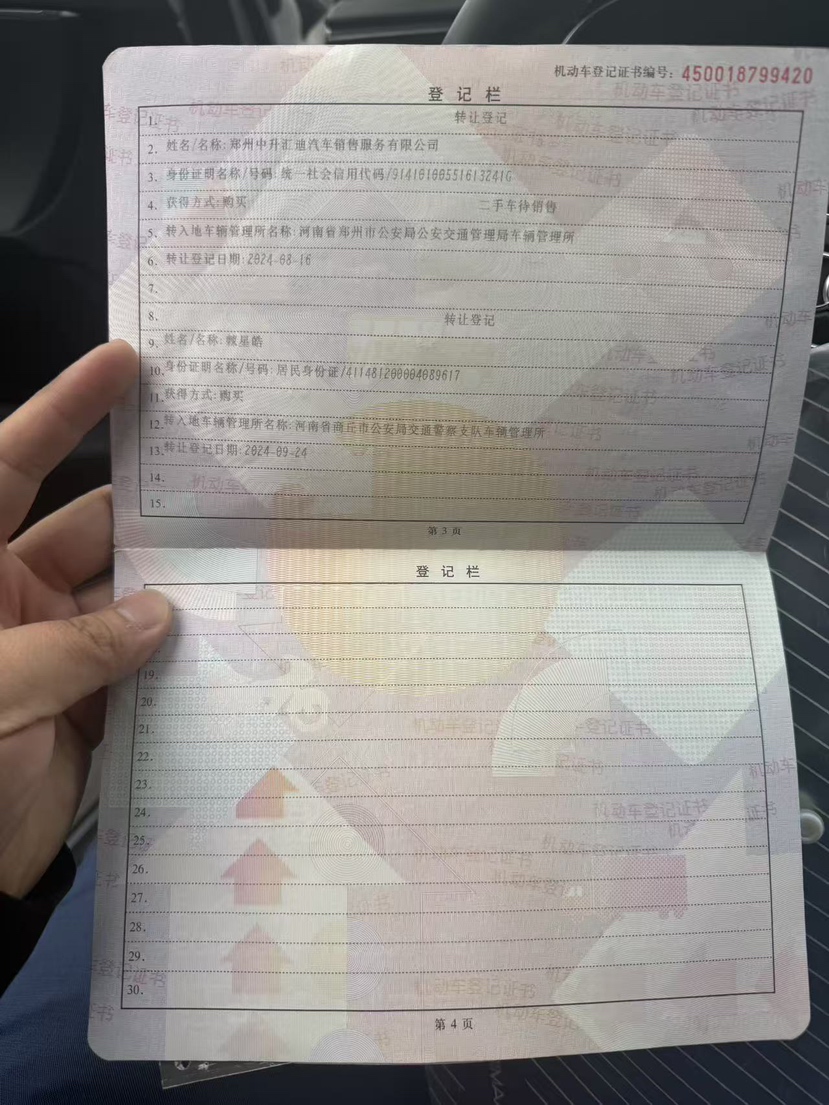 机动车登记证书编号: 450018799420
登 记 栏
1. 转让登记
2. 姓名/名称: 郑州中升汇迪汽车销售服务有限公司
3. 身份证明名称/号码: 统一社会信用代码/91410100551613241G
4. 获得方式: 购买 二手车待销售
5. 转入地车辆管理所名称: 河南省郑州市公安局公安交通管理局车辆管理所
6. 转让登记日期: 2024-08-16
7.
8. 转让登记
9. 姓名/名称: 星皓
10. 身份证明名称/号码: 居民身份证/411481200004089617
11. 获得方式: 购买
12. 转入地车辆管理所名称: 河南省商丘市公安局交通警察支队车辆管理所
13. 转让登记日期: 2024-09-24
14.
15.
第 3 页
登 记 栏
19.
20.
21.
22.
23.
24.
25.
26.
27.
28.
29.
30.
第 4 页